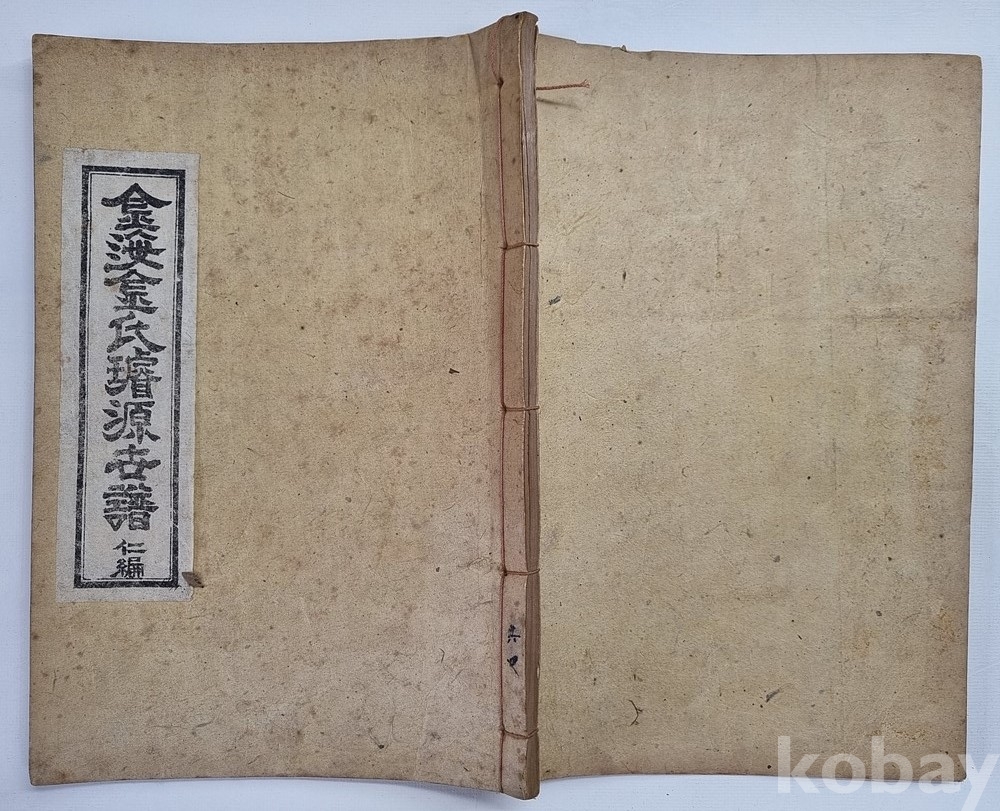 金海金氏璿源世譜 仁編
共四
kobay